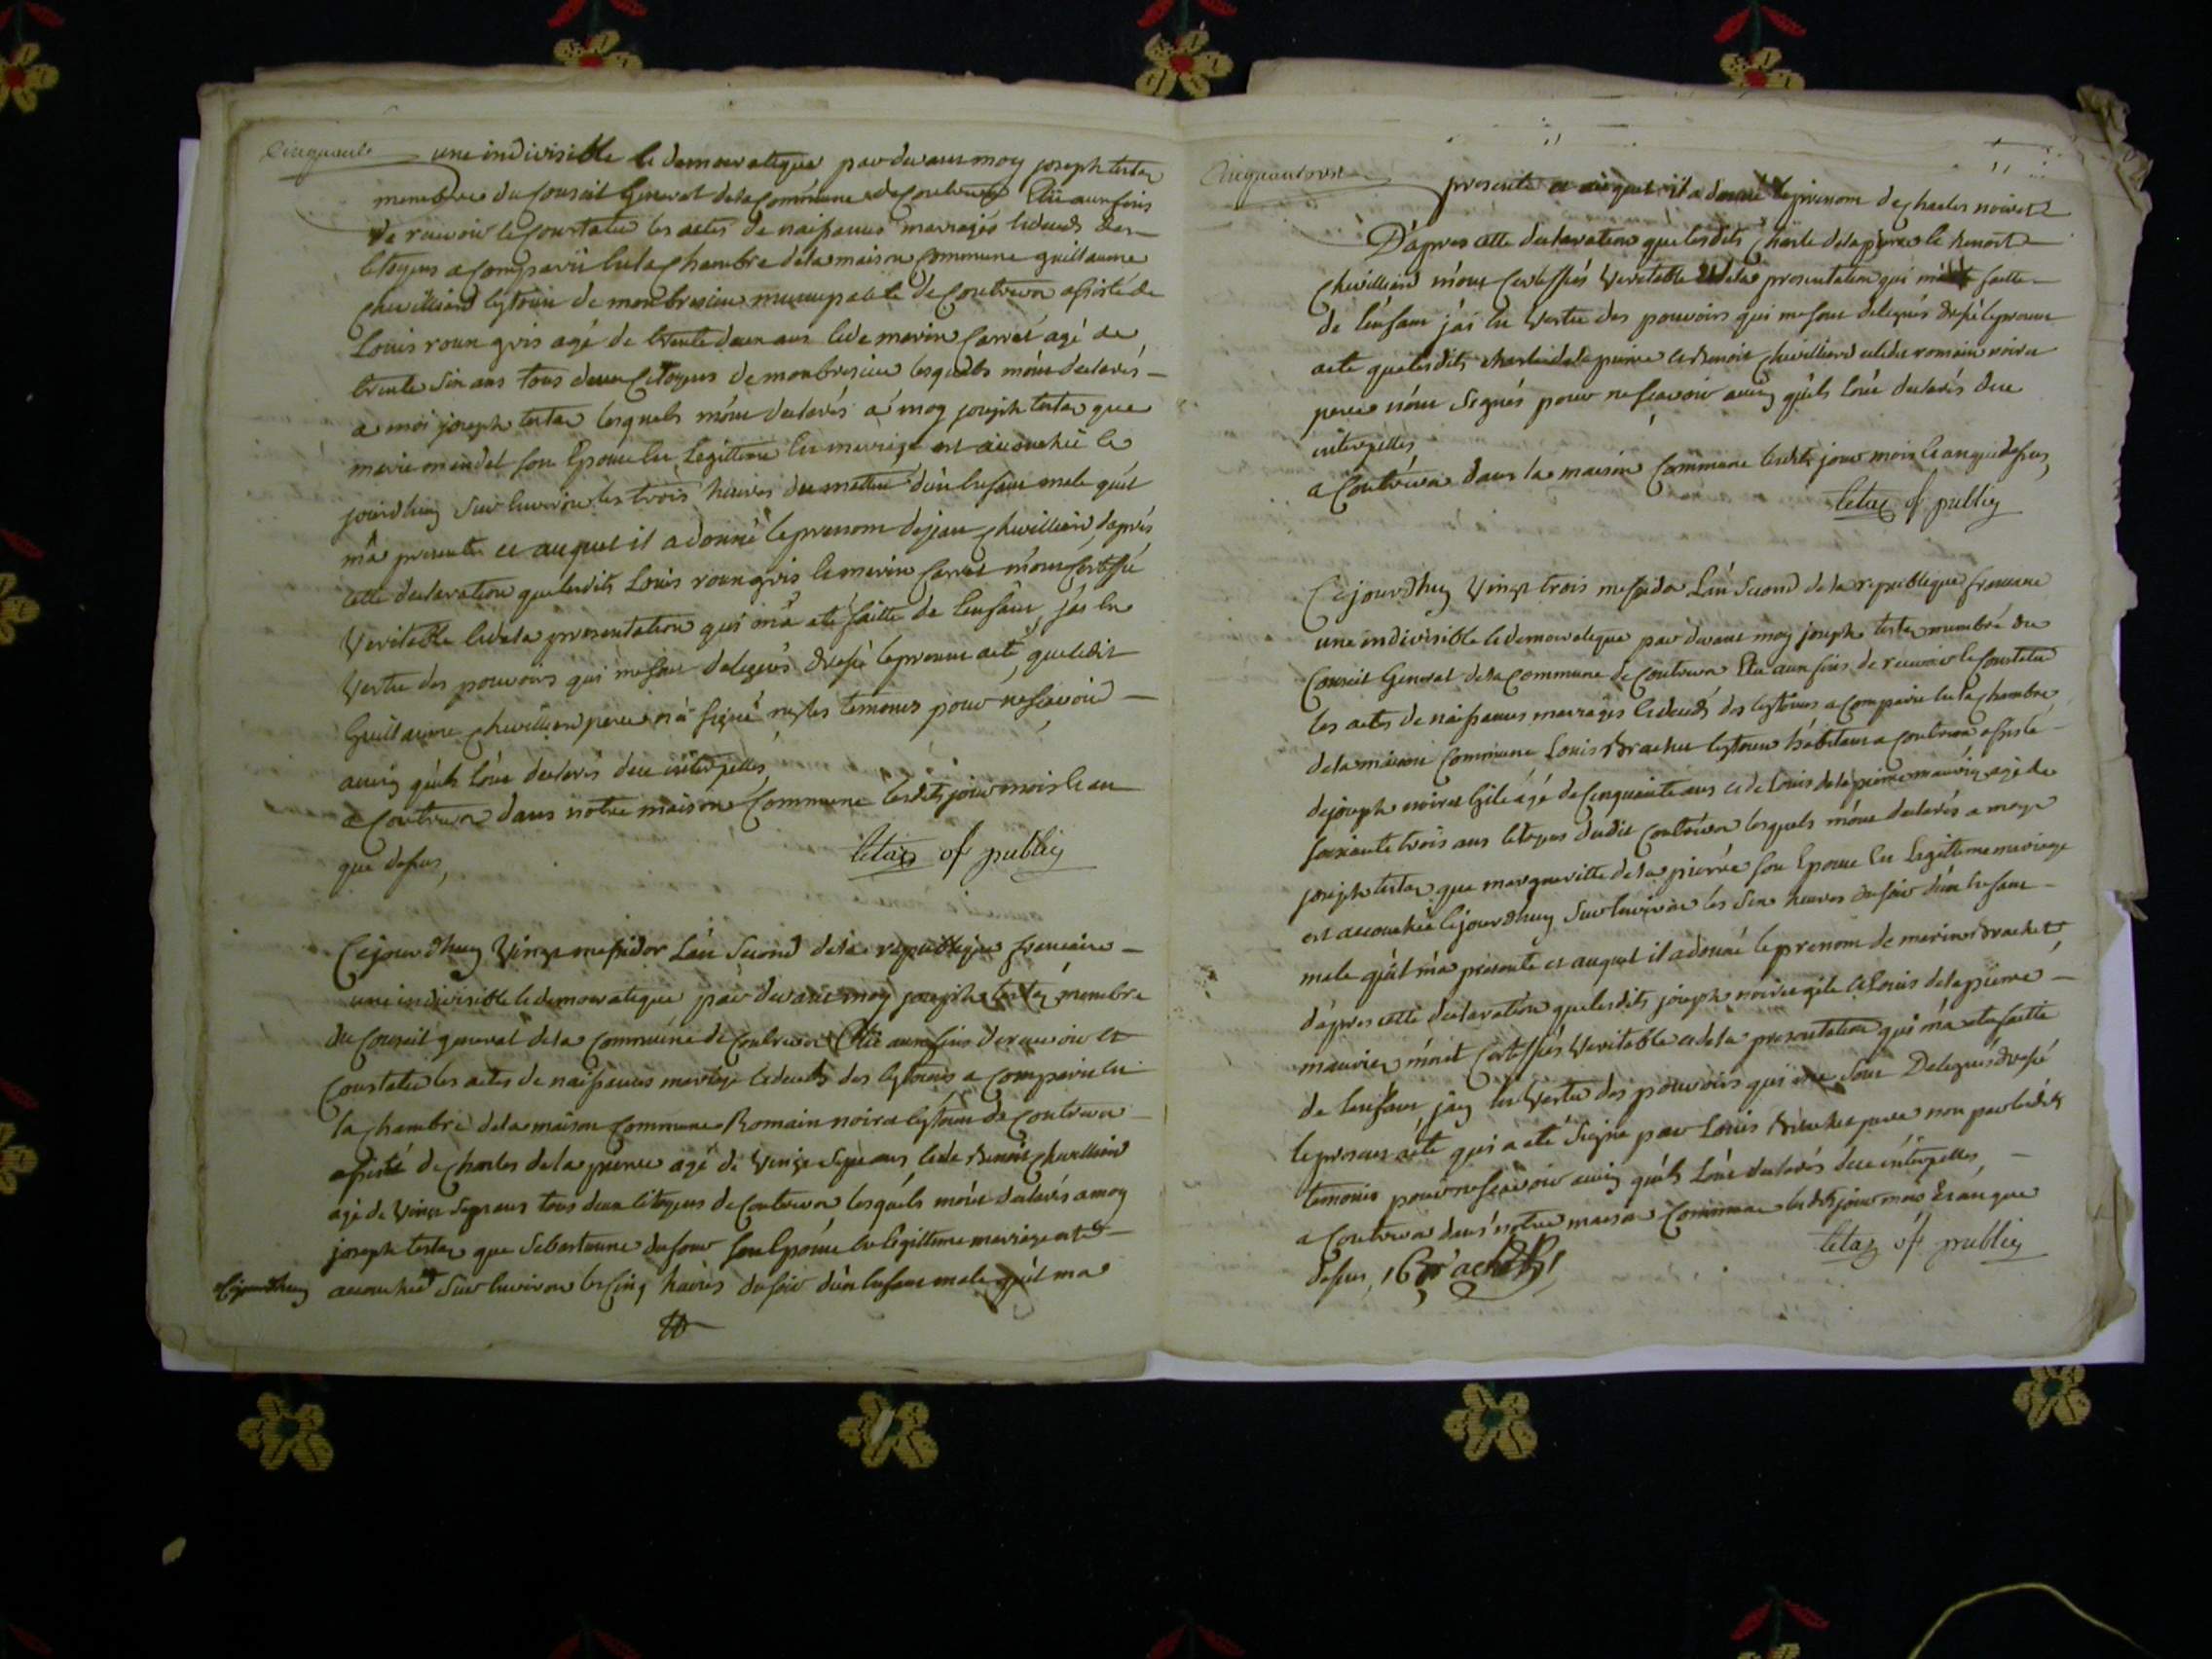 Cinquante
une indivisible le democratique par devant moy joseph tertaz
membre du Conseil General de la Commune de Contrevoz Elu aux fins
de recevoir le Constater les actes de naissances marriages le deceds des
Citoyens a Comparü en la Chambre de la maison Commune guillaume
Chevilliard Cytoien de mombresieu municipalité de Contrevoz assisté de
Louis roux gris agé de trente deux ans le de merin Carrel agé de
trente six ans tous deux Citoyens de mombresieu lesquels m'ont declarés
a moi joseph tertaz lesquels m'ont declarés a moy joseph tertaz que
marie mandet son Epouse en Legittime en marriage est accouchée Ce
jourdhuy sur environ les trois heures du mattin d'un Enfant male quil
m'a presenté et auquel il a donné le prenom de jean Chevilliard, d'aprés
cette declaration que lesdits Louis roux gris le merin Carrel m'ont Certiffié
Veritable le de la presentation qui m'a eté faitte de lenfant, j'ai En
Vertu des pouvoirs qui me sont delegués dressé le present acte, que ledit
Guillaume Chevilliard pere n'a signé ny les temoins pour ne scavoir
ainsy quils l'ont declarés de ce interpelles,
a Contrevoz dans notre maison Commune lesdits jour mois le an
que dessus,
tertaz of public
Cejourdhuy Vingt messidor L'an Second de la republique francaise
une indivisible le democratique par devant moy joseph tertaz membre
du Conseil general de la Commune de Contrevoz Elu aux fins de recevoir et
Constater les actes de naissances marriage le deceds des Cytoiens a Comparü en
la Chambre de la maison Commune Romain noiret Cytoien de Contrevoz
assisté de Charles de la pierre agé de Vingt Sept ans le de Benoit Chevilliard
agé de Vingt Sept ans tous deux Citoyens de Contrevoz lesquels m'ont declarés a moy
joseph tertaz que Sebastienne dufour son Epouse en legittime marriage est
Cejourdhuy
accouchée sur environ les Cinq heures du soir d'un Enfant male quil m'a
Cinquante une
presenté et auquel il a donné le prenom de Charles noiret
D'apres cette declaration que lesdits Charle delapierre le Benoit
Chevilliard m'ont Certiffiés Veritable et de la presentation qui m'a eté faitte
de lenfant j'ai En Vertu des pouvoirs qui me sont delegués dressé le present
acte que lesdits charle de la pierre le Benoit Chevilliard et ledit romain noiret
pere n'ont signés pour ne scavoir ainsy quils l'ont declarés de ce
interpelles,
a Contrevoz dans la maison Commune lesdits jour mois le an que dessus,
tertaz of public
Cejourdhuy Vingt trois messidor L'an Second de la republique francaise
une indivisible le democratique par devant moy joseph tertaz membre du
Conseil General de la Commune de Contrevoz Elu aux fins de recevoir le Constater
les actes de naissances marriages le deceds des Cytoiens a Comparü en la Chambre
de la maison Commune Louis Brachet Cytoien habitant a Contrevoz assisté
de joseph noiret Gile agé de Cinquante ans et de Louis de la pierre mauvin agé de
soixante trois ans Citoyens dudit Contrevoz lesquels m'ont declarés a moy
joseph tertaz que margueritte de la pierre son Epouse en Legittime marriage
est accouchée Cejourdhuy sur environ les six heures du soir d'un Enfant
male quil m'a presenté et auquel il a donné le prenom de merin Brachet,
d'apres cette declaration que lesdits joseph noiret gile le Louis delapierre
m'ont Certiffiés Veritable et de la presentation qui m'a eté faitte
de lenfant, j'ay en Vertu des pouvoirs qui me sont Delegués dressé
le present acte qui a eté signé par Louis Brachet pere non par lesdits
temoins pour ne scavoir ainsy quils l'ont declarés de ce interpelles,
a Contrevoz dans notre maison Commune lesdits jour mois Et an que
dessus, Brachet
tertaz of public